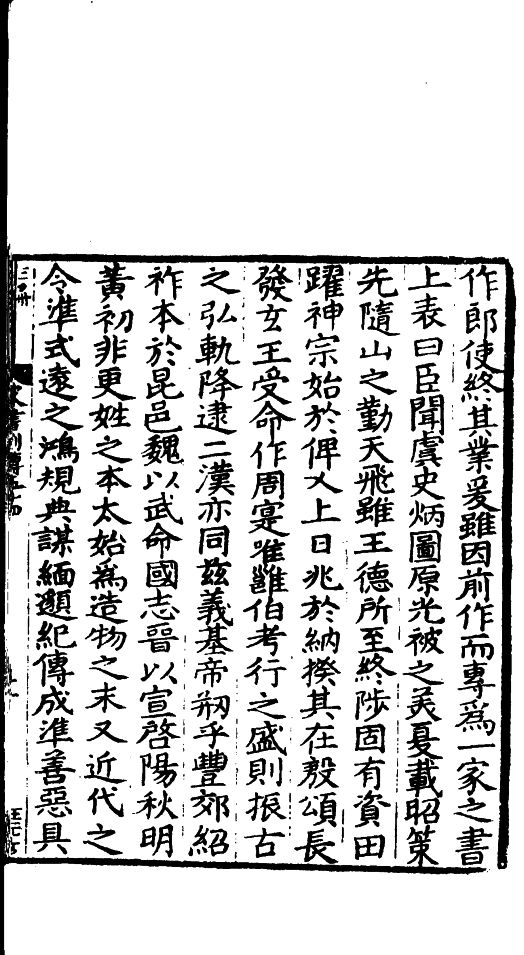 作郎使終其業爰雖因前作而專爲一家之書
上表曰臣聞虞史炳圖原光被之美夏載昭策
先隨山之勤天飛雖王德所至終陟固有資田
躍神宗始於俾乂上日兆於納揆其在殷頌長
發玄王受命作周寔唯雝伯考行之盛則振古
之弘軌降逮二漢亦同兹義基帝刱乎豐郊紹
祚本於昆邑魏以武命國志晉以宣啓陽秋明
黃初非更姓之本太始爲造物之末又近代之
令準式遠之鴻規典謀緬邈紀傳成準善惡具